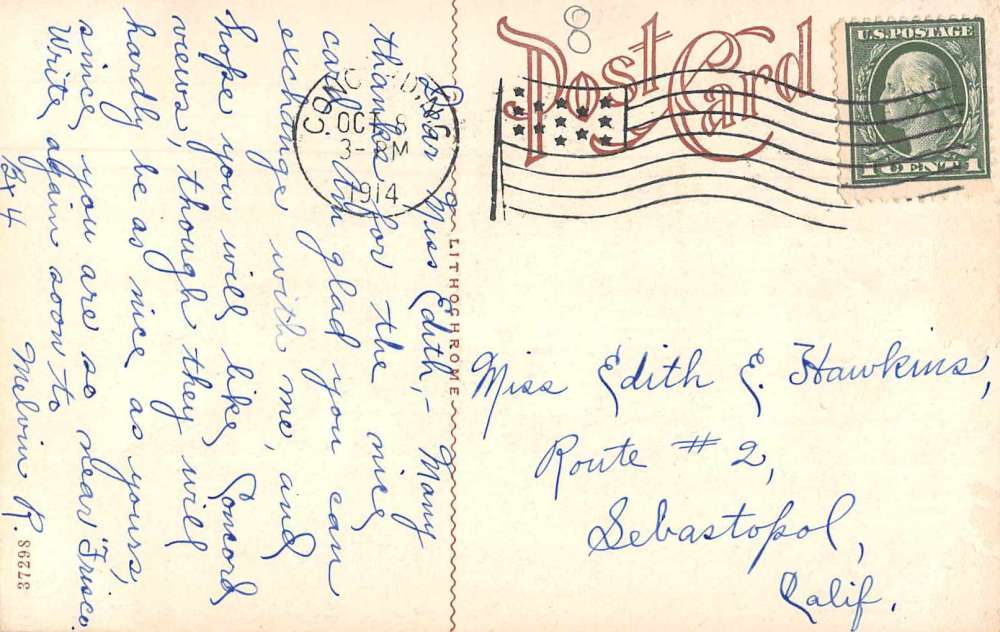 Post Card
U.S. POSTAGE
1 CENT 1
OCT 8
3 - PM
1914
LITHOCHROME
Dear Miss Edith, - Many
thanks for the nice
card. Am glad you can
exchange with me, and
hope you will like Concord
views, though they will
hardly be as nice as yours,
since you are so near 'Frisco.
Write again soon to
Melvin R.
Bx 4
37298
8
Miss Edith E. Hawkins,
Route # 2,
Sebastopol,
Calif.